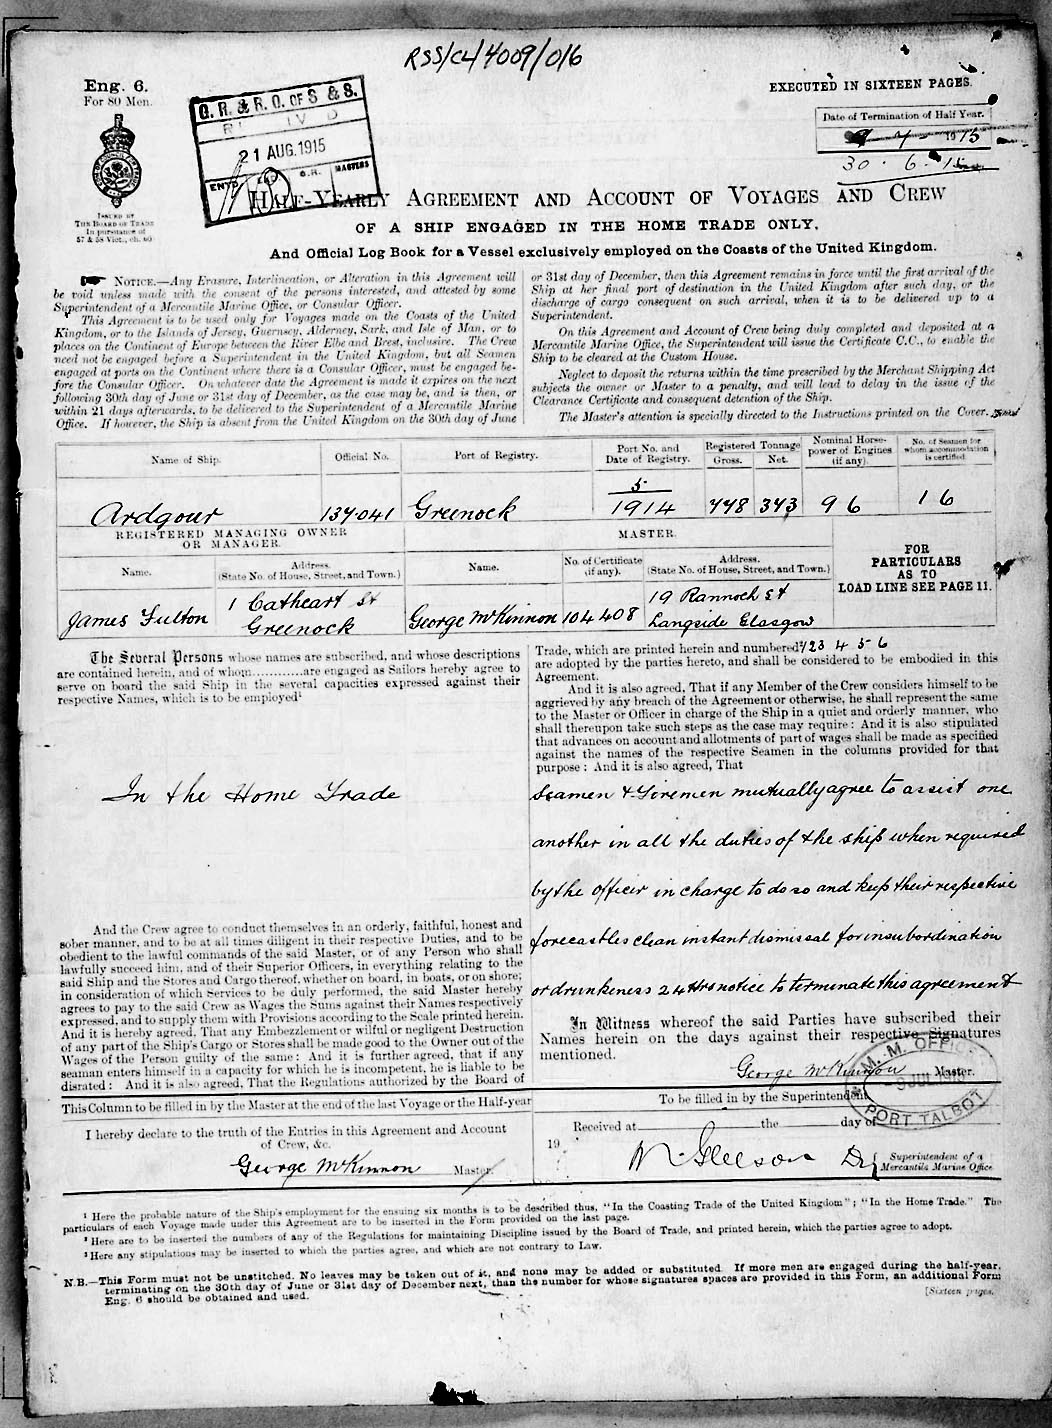 RSS/CL/4009/016
Eng. 6.
For 80 Men.
EXECUTED IN SIXTEEN PAGES.
G. R. & R. O. OF S & S.
21 AUG. 1915
ENTD
MASTERS
Date of Termination of Half Year.
1915
30 . 6 . 15
ISSUED BY
THE BOARD OF TRADE
In pursuance of
57 & 58 Vict., ch. 60
HALF-YEARLY AGREEMENT AND ACCOUNT OF VOYAGES AND CREW
OF A SHIP ENGAGED IN THE HOME TRADE ONLY,
And Official Log Book for a Vessel exclusively employed on the Coasts of the United Kingdom.
NOTICE.—Any Erasure, Interlineation, or Alteration in this Agreement will
be void unless made with the consent of the persons interested, and attested by some
Superintendent of a Mercantile Marine Office, or Consular Officer.
This Agreement is to be used only for Voyages made on the Coasts of the United
Kingdom, or to the Islands of Jersey, Guernsey, Alderney, Sark, and Isle of Man, or to
places on the Continent of Europe between the River Elbe and Brest, inclusive. The Crew
need not be engaged before a Superintendent in the United Kingdom, but all Seamen
engaged at ports on the Continent where there is a Consular Officer, must be engaged be-
fore the Consular Officer. On whatever date the Agreement is made it expires on the next
following 30th day of June or 31st day of December, as the case may be, and is then, or
within 21 days afterwards, to be delivered to the Superintendent of a Mercantile Marine
Office. If however, the Ship is absent from the United Kingdom on the 30th day of June
or 31st day of December, then this Agreement remains in force until the first arrival of the
Ship at her final port of destination in the United Kingdom after such day, or the
discharge of cargo consequent on such arrival, when it is to be delivered up to a
Superintendent.
On this Agreement and Account of Crew being duly completed and deposited at a
Mercantile Marine Office, the Superintendent will issue the Certificate C.C., to enable the
Ship to be cleared at the Custom House.
Neglect to deposit the returns within the time prescribed by the Merchant Shipping Act
subjects the owner or Master to a penalty, and will lead to delay in the issue of the
Clearance Certificate and consequent detention of the Ship.
The Master's attention is specially directed to the Instructions printed on the Cover.
Name of Ship. Official No. Port of Registry. Port No. and Date of Registry. Registered Tonnage Gross. Net. Nominal Horse-power of Engines (if any). No. of Seamen for whom accommodation is certified.
Ardgour 137041 Greenock 5/1914 778 343 96 16
REGISTERED MANAGING OWNER
OR MANAGER.
MASTER.
Name. Address. (State No. of House, Street, and Town.) Name. No. of Certificate (if any). Address. (State No. of House, Street, and Town.)
FOR
PARTICULARS
AS TO
LOAD LINE SEE PAGE 11.
James Fulton 1 Cathcart St Greenock George McKinnon 104408 19 Rannoch St Langside Glasgow
The Several Persons whose names are subscribed, and whose descriptions
are contained herein, and of whom............are engaged as Sailors hereby agree to
serve on board the said Ship in the several capacities expressed against their
respective Names, which is to be employed¹
In the Home Trade
And the Crew agree to conduct themselves in an orderly, faithful, honest and
sober manner, and to be at all times diligent in their respective Duties, and to be
obedient to the lawful commands of the said Master, or of any Person who shall
lawfully succeed him, and of their Superior Officers, in everything relating to the
said Ship and the Stores and Cargo thereof, whether on board, in boats, or on shore;
in consideration of which Services to be duly performed, the said Master hereby
agrees to pay to the said Crew as Wages the Sums against their Names respectively
expressed, and to supply them with Provisions according to the Scale printed herein.
And it is hereby agreed, That any Embezzlement or wilful or negligent Destruction
of any part of the Ship's Cargo or Stores shall be made good to the Owner out of the
Wages of the Person guilty of the same: And it is further agreed, that if any
seaman enters himself in a capacity for which he is incompetent, he is liable to be
disrated: And it is also agreed, That the Regulations authorized by the Board of
Trade, which are printed herein and numbered² 1 2 3 4 5 6
are adopted by the parties hereto, and shall be considered to be embodied in this
Agreement.
And it is also agreed, That if any Member of the Crew considers himself to be
aggrieved by any breach of the Agreement or otherwise, he shall represent the same
to the Master or Officer in charge of the Ship in a quiet and orderly manner, who
shall thereupon take such steps as the case may require: And it is also stipulated
that advances on account and allotments of part of wages shall be made as specified
against the names of the respective Seamen in the columns provided for that
purpose: And it is also agreed, That
Seamen & Firemen mutually agree to assist one
another in all the duties of the ship when required
by the officer in charge to do so and keep their respective
forecastles clean instant dismissal for insubordination
or drunkeness 24 Hrs notice to terminate this agreement
In Witness whereof the said Parties have subscribed their
Names herein on the days against their respective Signatures
mentioned.
George McKinnon Master.
M. M. OFFICE
9 JUL 1915
PORT TALBOT
This Column to be filled in by the Master at the end of the last Voyage or the Half-year
I hereby declare to the truth of the Entries in this Agreement and Account
of Crew, &c.
George McKinnon Master.
To be filled in by the Superintendent
Received at the day of
19
N. Gleeson Dy Superintendent of a Mercantile Marine Office
¹ Here the probable nature of the Ship's employment for the ensuing six months is to be described thus, "In the Coasting Trade of the United Kingdom"; "In the Home Trade." The
particulars of each Voyage made under this Agreement are to be inserted in the Form provided on the last page.
² Here are to be inserted the numbers of any of the Regulations for maintaining Discipline issued by the Board of Trade, and printed herein, which the parties agree to adopt.
³ Here any stipulations may be inserted to which the parties agree, and which are not contrary to Law.
N.B.—This Form must not be unstitched. No leaves may be taken out of it, and none may be added or substituted. If more men are engaged during the half-year,
terminating on the 30th day of June or 31st day of December next, than the number for whose signatures spaces are provided in this Form, an additional Form
Eng. 6 should be obtained and used.
[Sixteen pages.